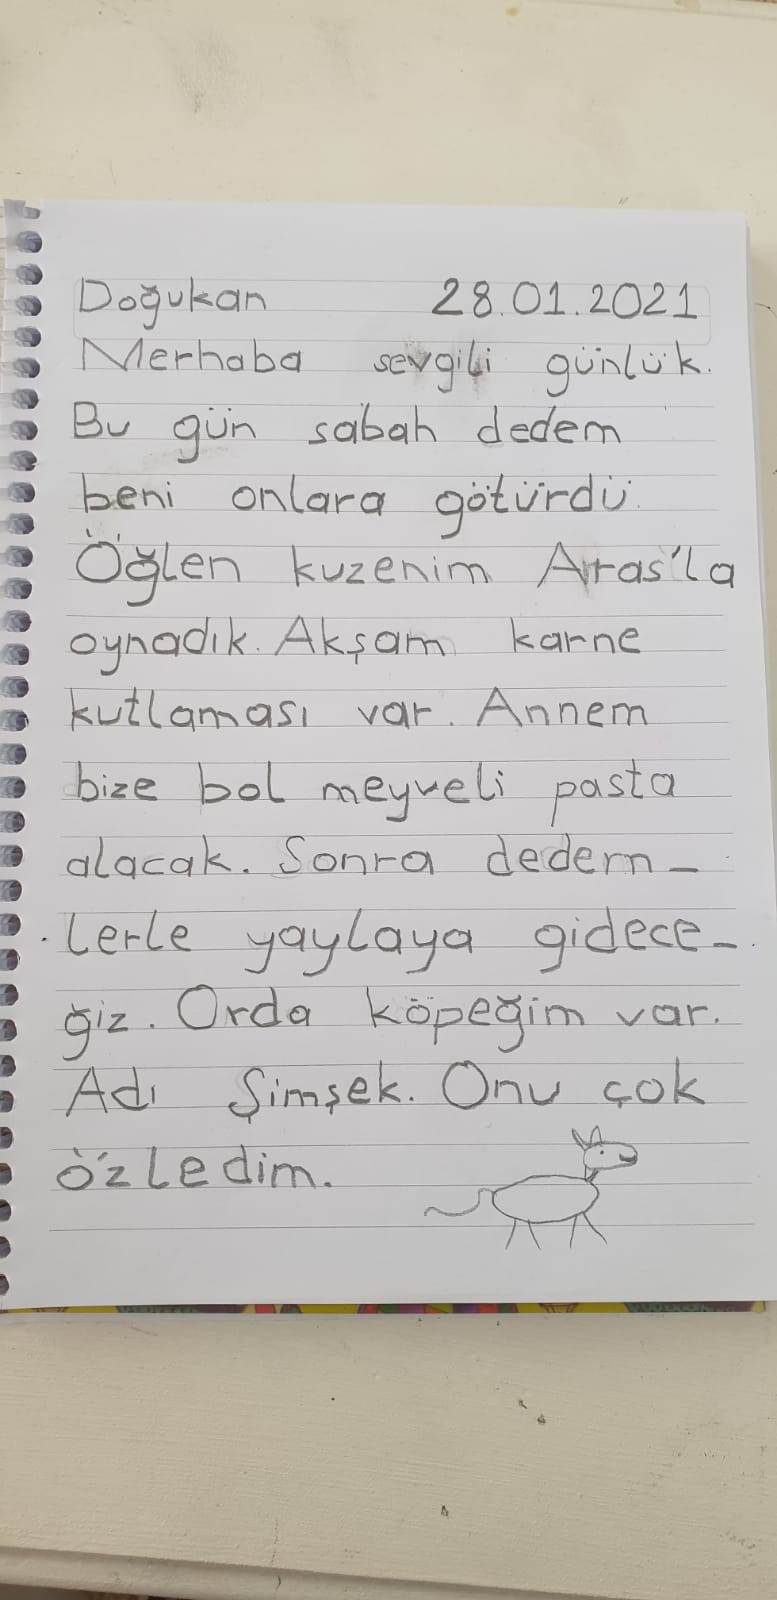 Doğukan 28.01.2021
Merhaba sevgili günlük.
Bu gün sabah dedem
beni onlara götürdü.
Öğlen kuzenim Aras'la
oynadık. Akşam karne
kutlaması var. Annem
bize bol meyveli pasta
alacak. Sonra dedem-
lerle yaylaya gidece-
ğiz. Orda köpeğim var.
Adı Şimşek. Onu çok
özledim.